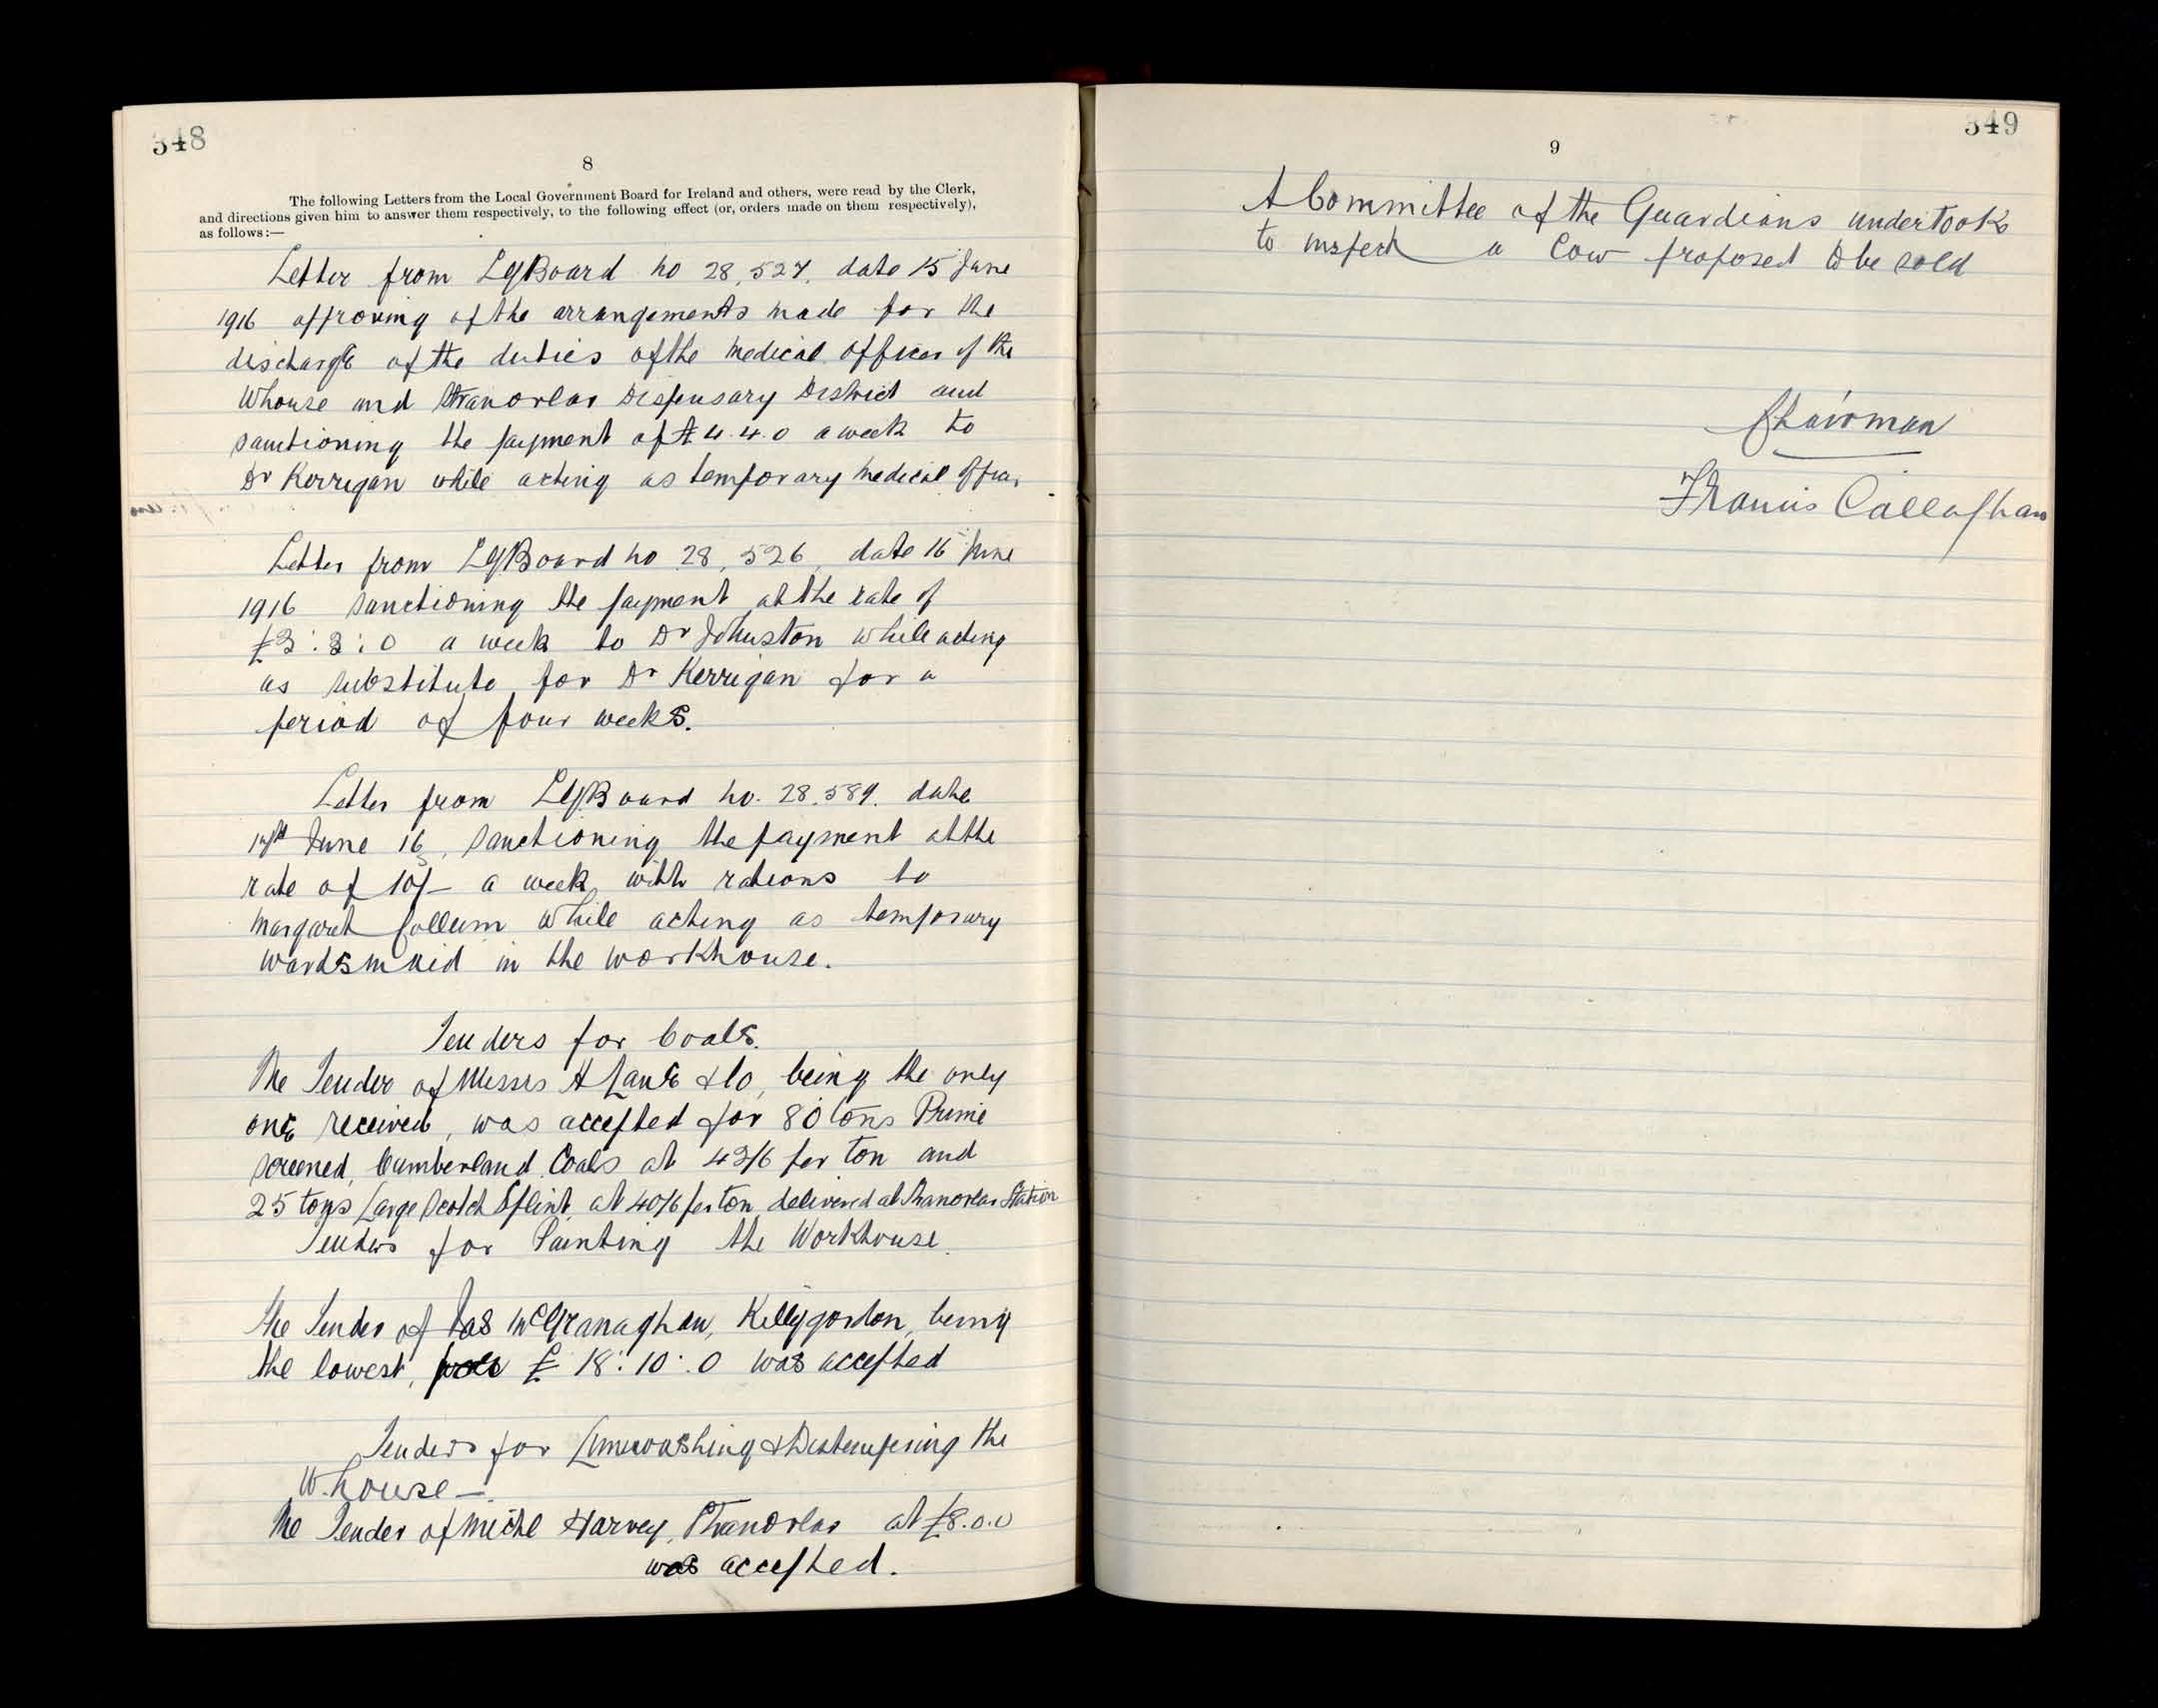 348
8
The following Letters from the Local Government Board for Ireland and others, were read by the Clerk,
and directions given him to answer them respectively, to the following effect (or, orders made on them respectively),
as follows:—
Letter from LGBoard no 28,527, date 15 June
1916 approving of the arrangements made for the
discharge of the duties of the medical officer of the
Whouse and Stranorlar Dispensary District and
sanctioning the payment of £4.4.0 a week to
Dr Kerrigan while acting as temporary medical officer
Letter from LGBoard no 28,526, date 16 June
1916 sanctioning the payment at the rate of
£3:3:0 a week to Dr Johnston while acting
as substitute for Dr Kerrigan for a
period of four weeks.
Letter from LGBoard no. 28.589. date
June 16, sanctioning the payment at the
rate of 10/- a week with rations to
Margaret Collum while acting as temporary
wardsmaid in the workhouse.
Tenders for Coals.
The Tender of Messrs A Lane & Co, being the only
one received, was accepted for 80 tons Prime
screened Cumberland Coals at 43/6 per ton and
25 tons Large Scotch Splint at 40/6 per ton delivered at Stranorlar Station
Tenders for Painting the Workhouse.
The Tender of Jas McGranaghan, Killygordon, being
the lowest, £18:10:0 was accepted
Tenders for Limewashing & Distempering the
W.house —
The Tender of Michl Harvey, Stranorlar at £8.0.0
was accepted.
349
9
A Committee of the Guardians undertook
to inspect a Cow proposed to be sold
Chairman
Francis Callaghan